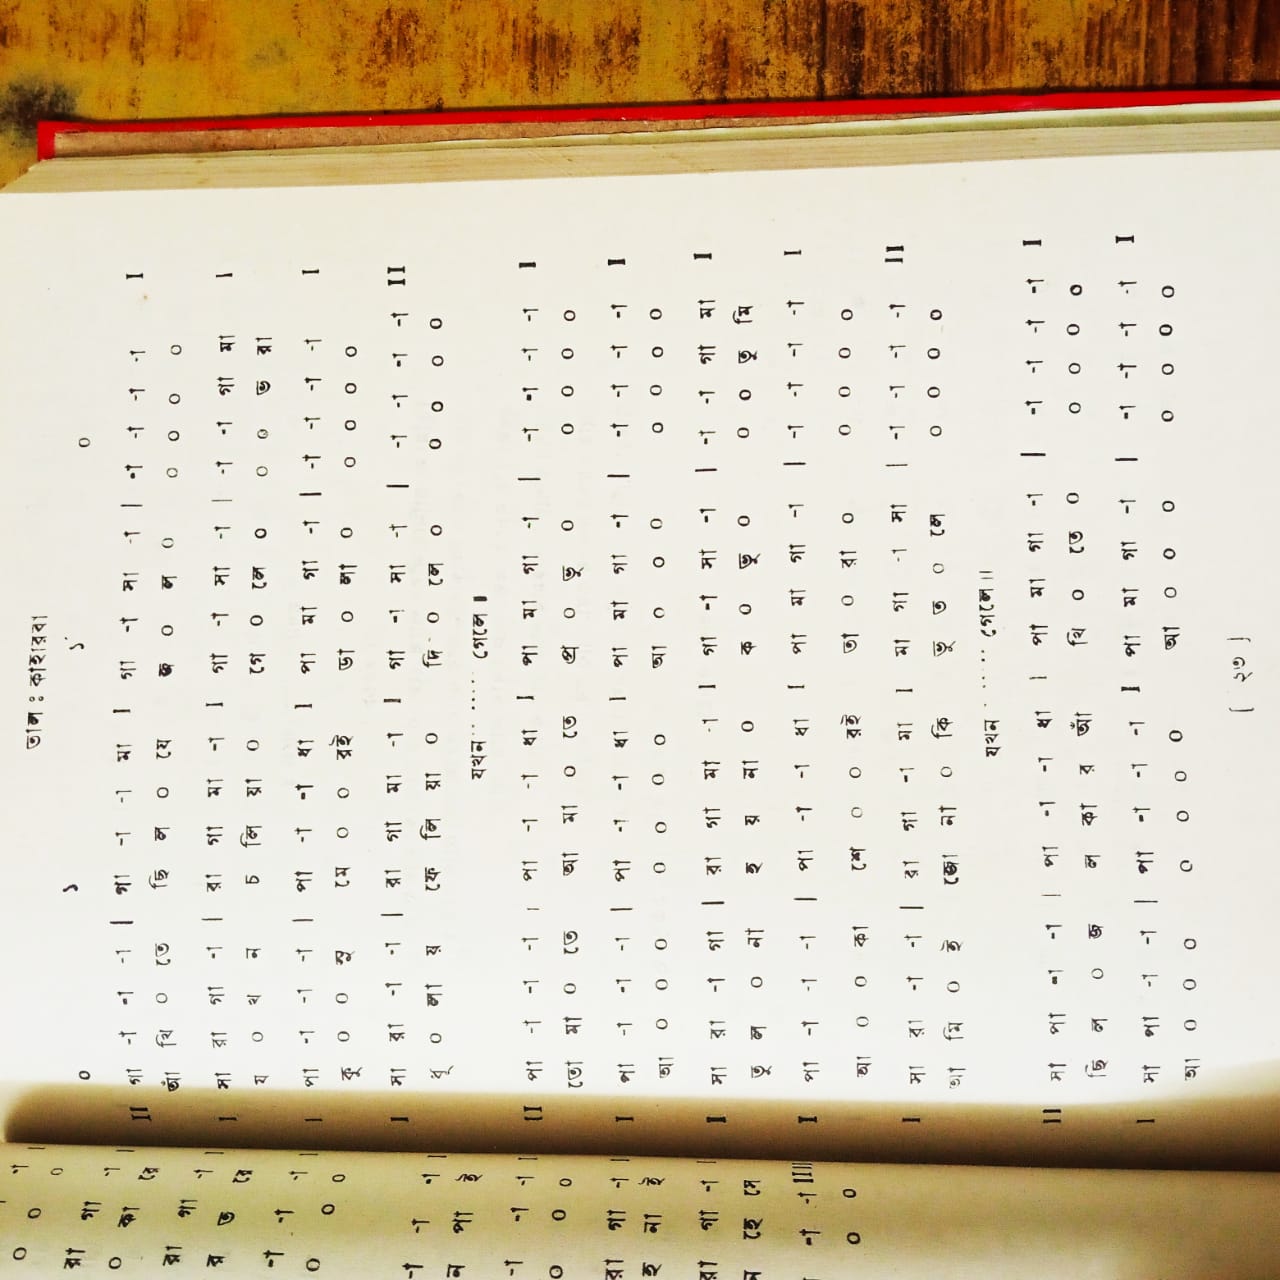 তাল : কাহারবা
০ ১ ১´ ০
II গা -া -া -া | গা -া -া মা I গা -া সা -া | -া -া -া -া I
আঁ খি ০ তে ছি ল ০ যে জ ০ ল ০ ০ ০ ০ ০
I সা রা গা -া | রা গা মা -া I গা -া সা -া | -া -া গা মা I
য ০ খ ন চ লি য়া ০ গে ০ লে ০ ০ ০ ভ রা
I পা -া -া -া | পা -া -া ধা I পা মা গা -া | -া -া -া -া I
কু ০ ০ সু মে ০ ০ রই ডা ০ লা ০ ০ ০ ০ ০
I সা রা -া -া | রা গা মা -া I গা -া সা -া | -া -া -া -া II
ধূ ০ লা য় ফে লি য়া ০ দি ০ লে ০ ০ ০ ০ ০
যখন ...... গেলে ॥
II পা -া -া -া | পা -া -া ধা I পা মা গা -া | -া -া -া -া I
তো মা ০ তে আ মা ০ তে প্র ০ ভু ০ ০ ০ ০ ০
I পা -া -া -া | পা -া -া ধা I পা মা গা -া | -া -া -া -া I
আ ০ ০ ০ ০ ০ ০ ০ আ ০ ০ ০ ০ ০ ০ ০
I সা রা -া গা | রা গা মা -া I গা -া সা -া | -া -া গা মা I
তু ল ০ না হ য় না ০ ক ০ ভু ০ ০ ০ তু মি
I পা -া -া -া | পা -া -া ধা I পা মা গা -া | -া -া -া -া I
আ ০ ০ কা শে ০ ০ রই তা ০ রা ০ ০ ০ ০ ০
I সা রা -া -া | রা গা -া মা I মা গা -া সা | -া -া -া -া II
আ মি ০ ই জো না ০ কি ভূ ত ০ লে ০ ০ ০ ০
যখন ...... গেলে॥
II সা পা -া -া | পা -া -া ধা I পা মা গা -া | -া -া -া -া I
ছি ল ০ জ ল কা র আঁ খি ০ তে ০ ০ ০ ০ ০
I সা পা -া -া | পা -া -া -া I পা মা গা -া | -া -া -া -া I
আ ০ ০ ০ ০ ০ ০ ০ আ ০ ০ ০ ০ ০ ০ ০
[ ২৩ ]